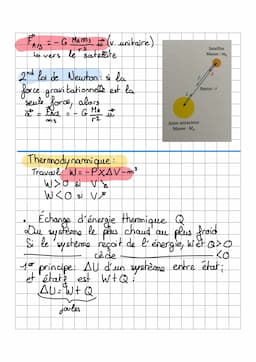 F⃗A/S = - G MA ms / r² u⃗ (v. unitaire)
↳ vers le satellite
2nd loi de Newton : si la
force gravitationnelle est la
seule force, alors
a⃗ = F⃗A/S / ms = - G MA / r² u⃗
Satellite
Masse : ms
Rayon : r
Astre attracteur
Masse : MA
Thermodynamique :
Travail W = -P × ΔV → m³
W > 0 si V ↘
W < 0 si V ↗
• Echange d'énergie thermique Q
↳ Du système le plus chaud au plus froid
Si le système reçoit de l'énergie, W et Q > 0
cède < 0
1er principe : ΔU d'un système entre état i
et état f est W + Q :
ΔU = W + Q
joules